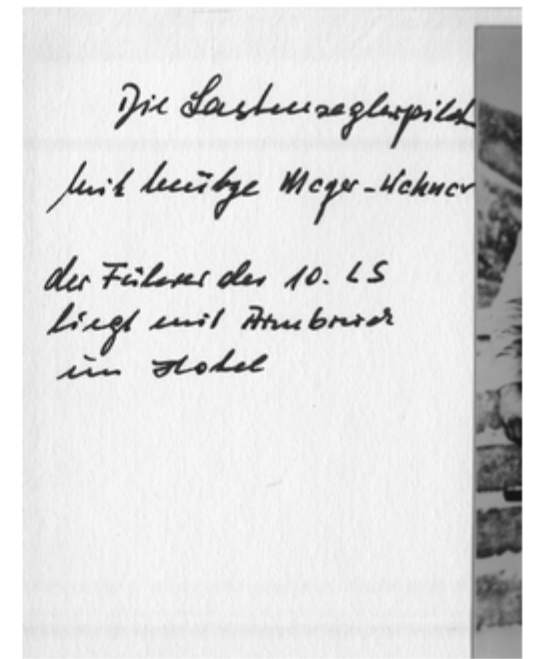 Die Lastenseglerpilot
mit Mütze Meyer-Wehner
der Führer der 10. LS
liegt mit Armbruch
im Hotel